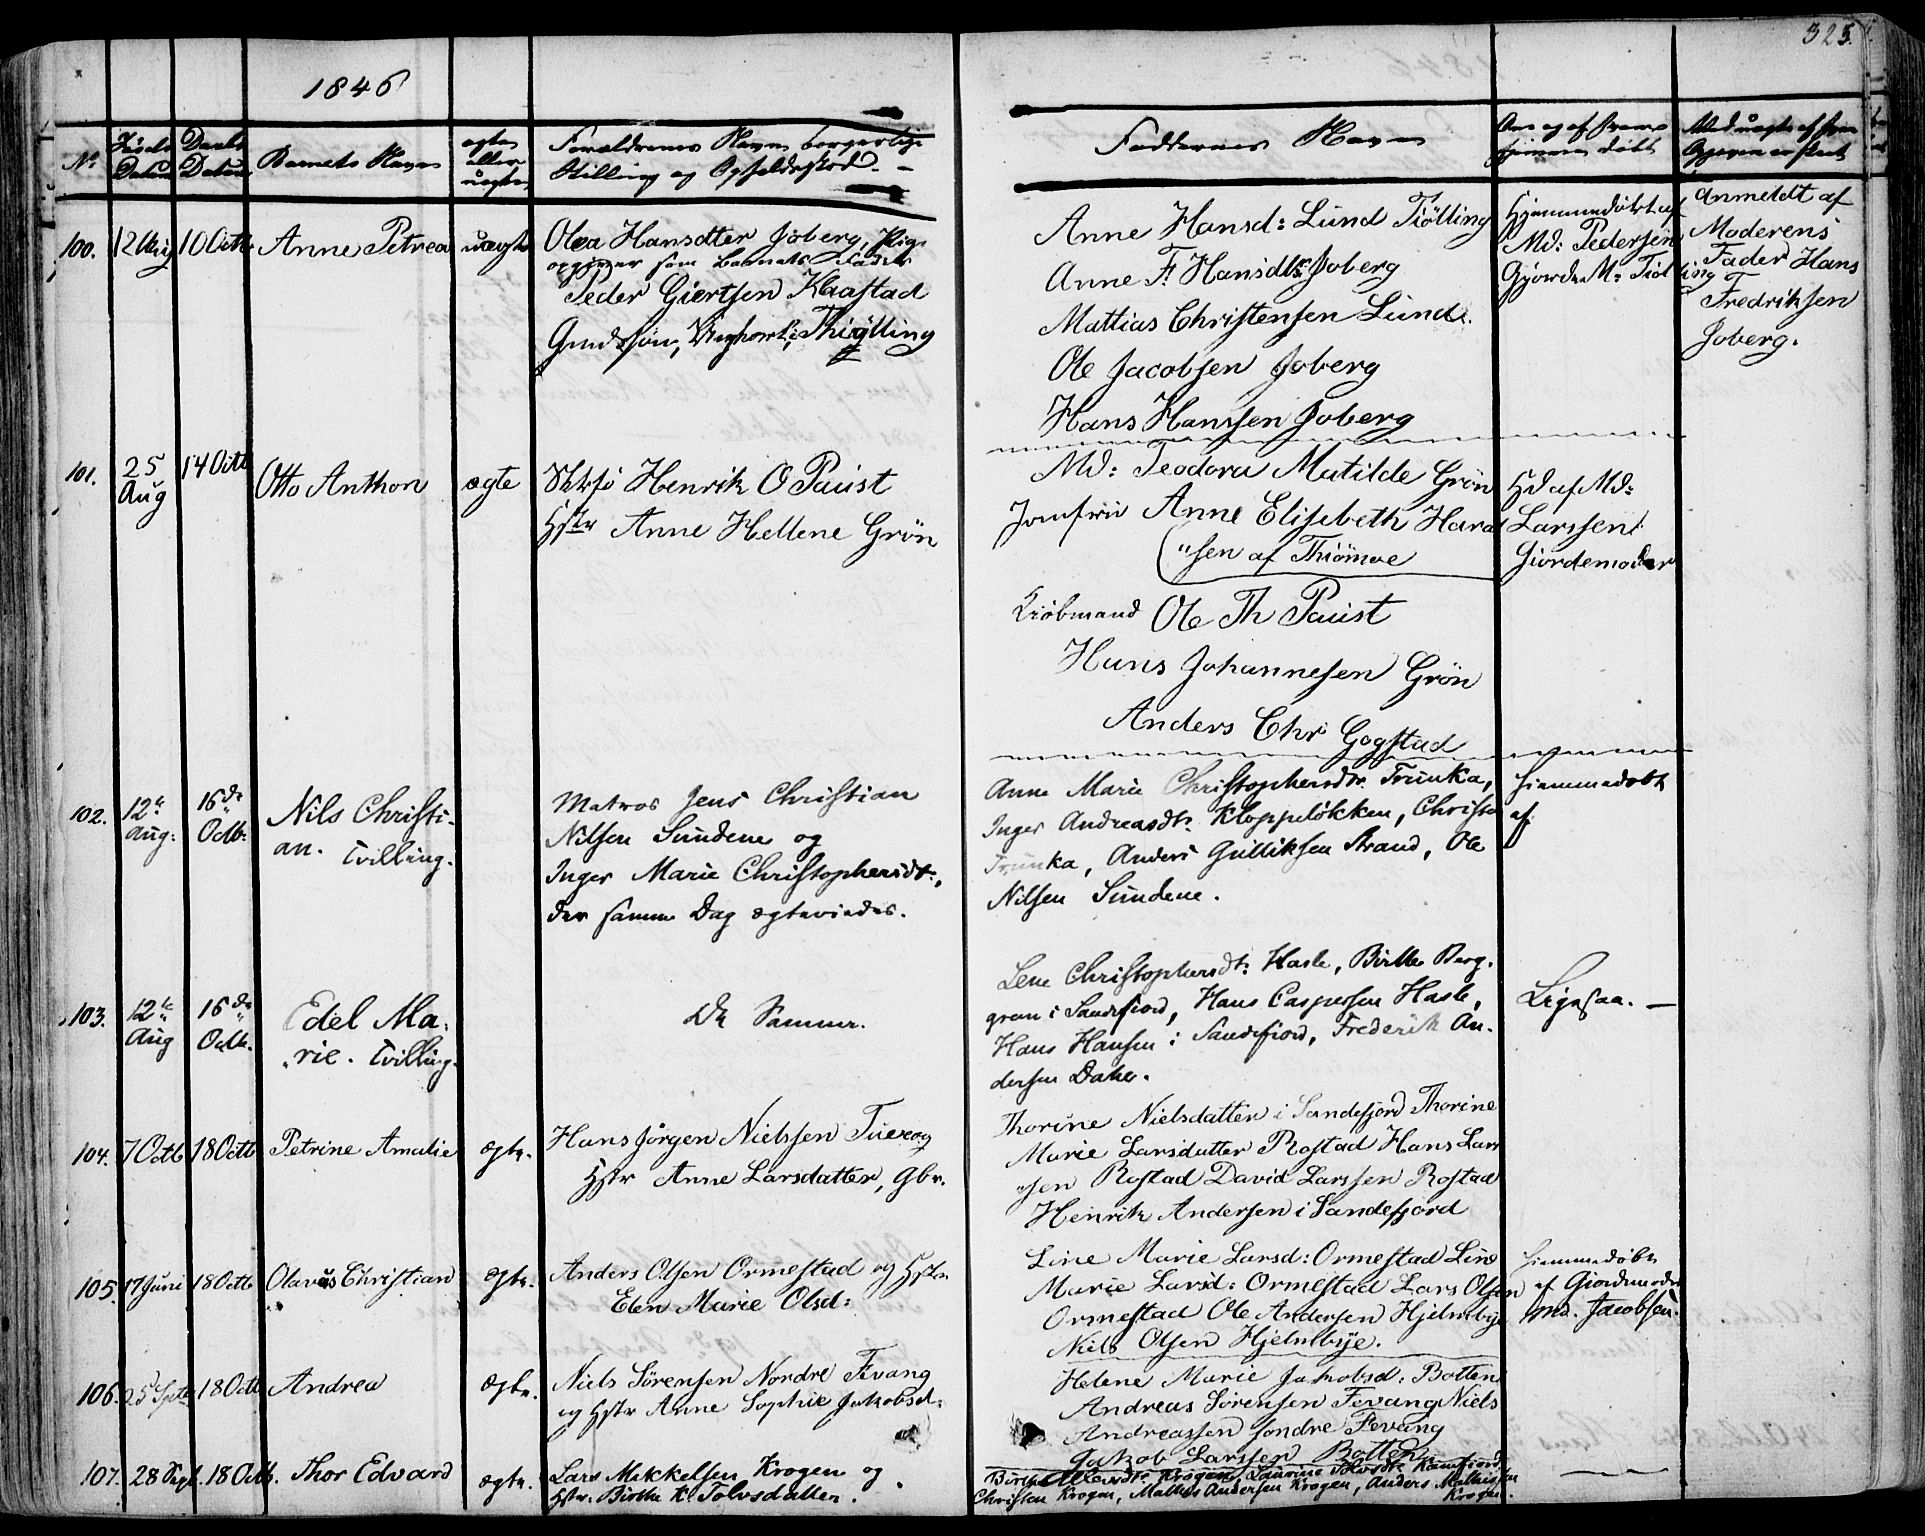 1846
325.
No
Daabs
Datum
Barnets Navn
ægte
eller
uægte
Forældrenes Navn borgerlige
Stilling og Opholdssted. –
Faddernes Navn
100. 12 Aug 10 Octb Anne Petrea uægte
Olea Hansdtter Joberg, Pige
opgiver som Barnets Fader
Peder Giertsen Klaastad
Thiølling
Anne Hansd: Lund Tiølling
Anne F. Hansdtr Joberg
Mattias Christensen Lund.
Ole Jacobsen Joberg
Hans Hanssen Joberg
Hjemmedøbt af
Md: Pedersen
Gjorde M: Tiølling
Anmeldt af
Moderens
Fader Hans
Fredriksen
Joberg.
101. 25 Aug 14 Octb Otto Anthon ægte
Henrik O Paust
Hstr Anne Hellene Grøn
Md: Teodora Matilde Grøn
Jomfru Anne Elisebeth Harald
"sen af Thiømoe
Kiøbmand Ole Th Paust
Hans Johannesen Grøn
Anders Chr Gogstad
Hd af Md:
Larssen
Giordemoder
102. 12te Aug: 16de Octb: Nils Christi-
an. Tvilling.
Matros Jens Christian
Nilsen Sundene og
Inger Marie Christophersdt:,
der samme Dag ægteviedes.
Anne Marie Christophersdtr. Trunka,
Inger Andreasdt: Kloppeløkken, Christen
Trunka, Anders Gulliksen Strand, Ole
Nilsen Sundene.
Hiemmedøbt
af
103. 12te Aug 16de Octb. Edel Ma-
rie. Tvilling.
De Samme.
Lene Christophersdt: Hasle, Birthe Berg-
gren i Sandefiord, Hans Caspersen Hasle,
Hans Hansen i Sandefiord, Frederik An-
dersen Dahe.
Ligesaa. —
104. 7 Octb 18 Octb Petrine Amalie ægte.
Hans Jørgen Nielssen Tueeog
Hstr Anne Larsdatter, Gbr.
Thorine Nielsdatter i Sandefjord Thorine
Marie Larsdatter Rostad Hans Lars
"sen Rostad David Larssen Rostad
Henrik Andersen i Sandefjord
105. 17 Juni 18 Octb Olavus Christian ægte.
Anders Olsen Ormestad og Hstr
Elen Marie Olsd:
Line Marie Larsd: Ormestad Line
Marie Larsd: Ormestad Lars Olsen
Ormestad Ole Andersen Hjelmbye
Niels Olsen Hjelmbye.
Hiemmedøbt
af Giordemoder
Md. Jacobsen.
106. 25 Septe 18 Octb Andrea ægte.
Niels Sørensen Nordre Fevang
og Hstr Anne Sophie Jakobsd:
Helene Marie Jakobsd: Botten
Andreas Sørensen Fevang Niels
Andreassen søndre Fevang
Jakob Larssen Botten
107. 28 Sept. 18 Octb. Thor Edvard ægte.
Lars Mikkelsen Krogen og
Hstr. Birthe K. Tolvsdatter.
Krogen, Laurine Tolvsdt: Kamfiord
Christen Krogen, Mathis Andersen Krogen, Anders Mathisen
Krogen.